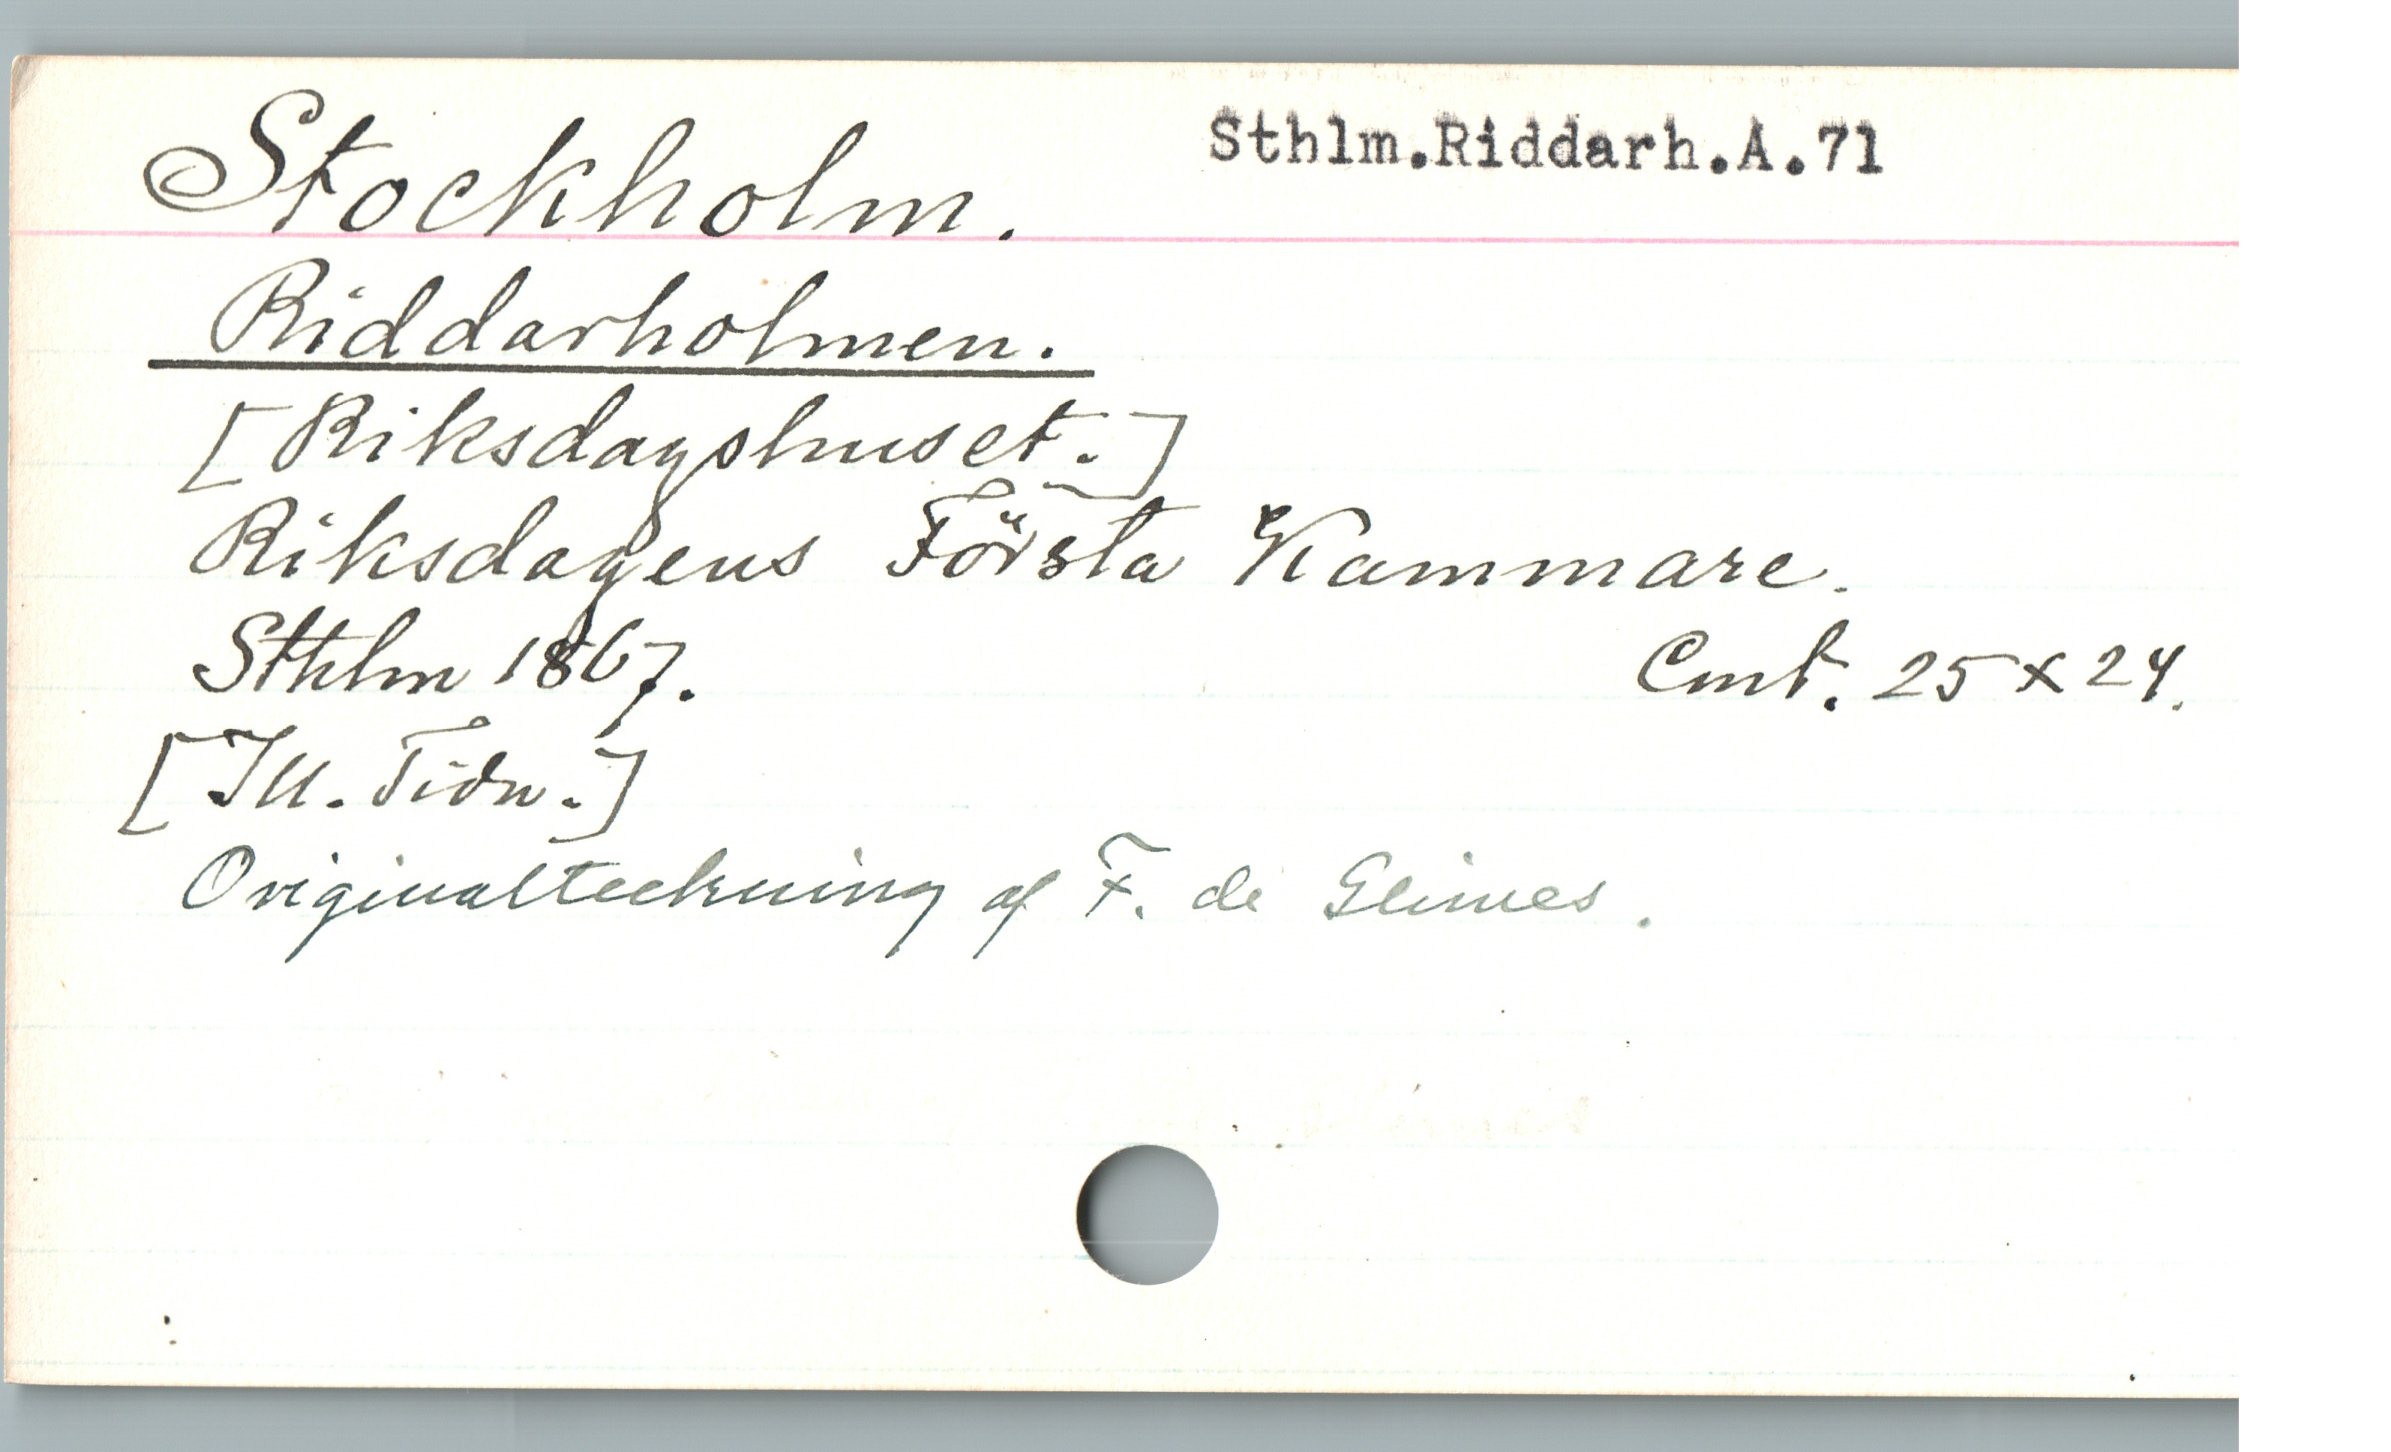 Stockholm.
Sthlm.Riddarh.A.71
Riddarholmen.
[Riksdagshuset.]
Riksdagens Första Kammare.
Sthlm 1867.
Cmt. 25 x 24.
[Ill. Tidn.]
Originalteckning af F. de Glimes.